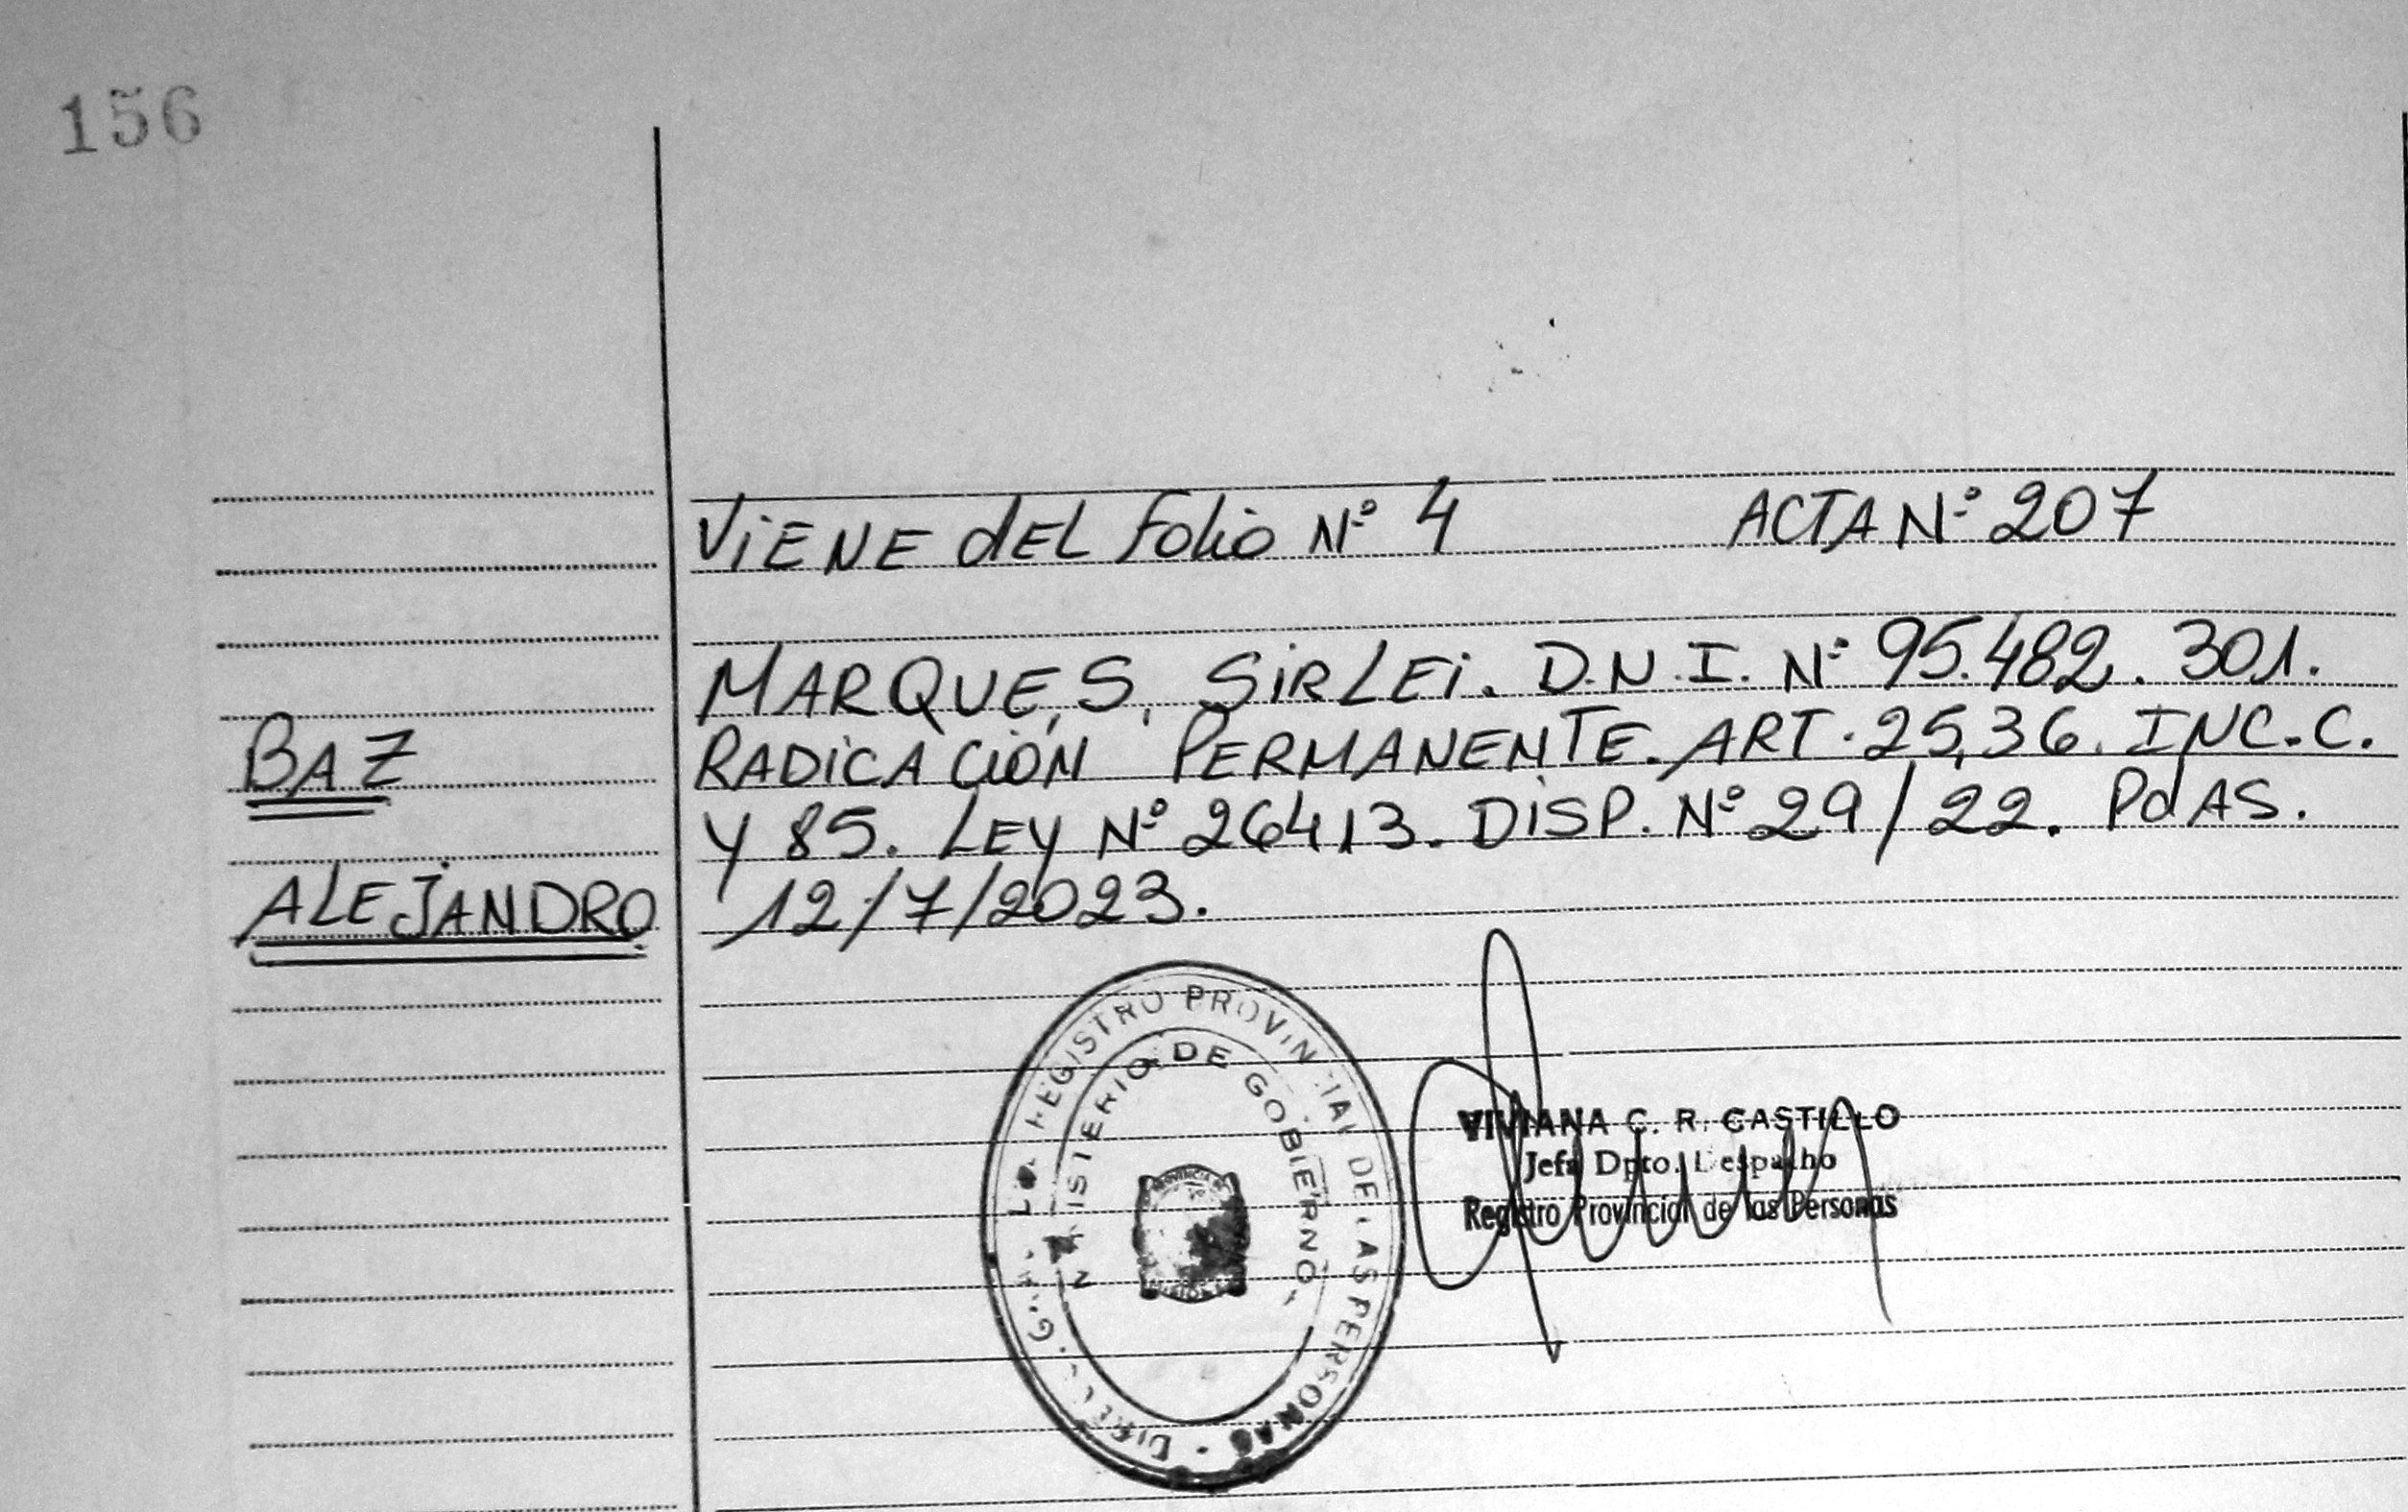 156
VIENE dEL Folio N° 4 ACTA N° 207
MARQUES, SIRLEI. D.N.I. N° 95.482.301.
BAZ
RADICACIÓN PERMANENTE. ART. 25,36. INC. C.
Y 85. LEY N° 26413. DISP. N° 29/22. PdAS.
ALEJANDRO
12/7/2023.
REGISTRO PROVINCIAL DE LAS PERSONAS
MINISTERIO DE GOBIERNO
VIVIANA C. R. CASTILLO
Jefa Dpto. Despacho
Registro Provincial de las Personas